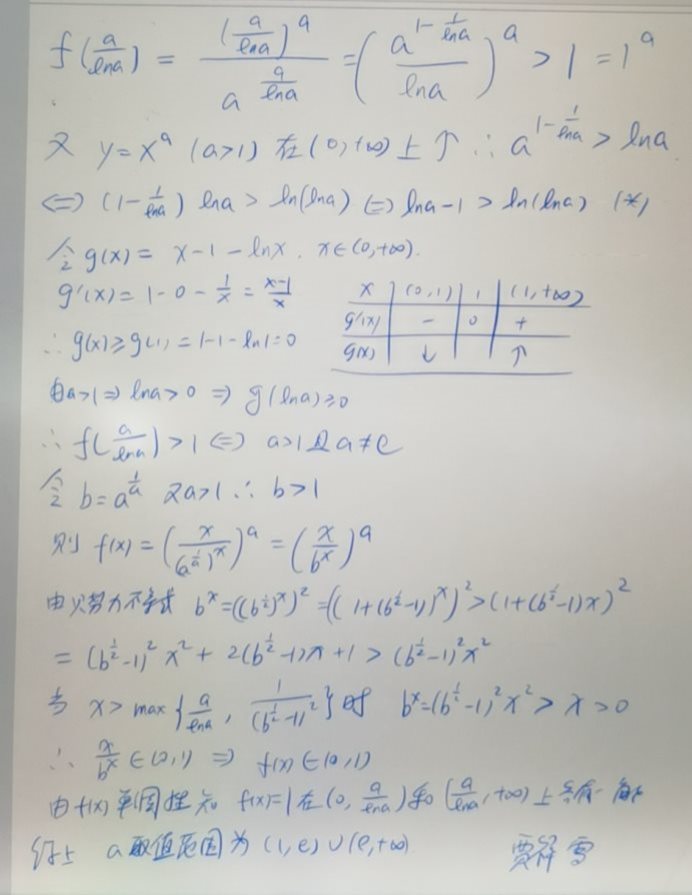 f(a/lna) = (a/lna)^a / a^(a/lna) = (a^(1-1/lna) / lna)^a > 1 = 1^a
又 y=x^a (a>1) 在(0,+∞)上↑ ∴ a^(1-1/lna) > lna
⇔ (1-1/lna) lna > ln(lna) ⇔ lna-1 > ln(lna) (*)
令 g(x) = x-1-lnx, x∈(0,+∞).
g'(x) = 1-0-1/x = (x-1)/x
∴ g(x)≥g(1) = 1-1-ln1=0
x (0,1) 1 (1,+∞)
g'(x) - 0 +
g(x) ↓ ↑
由a>1 ⇒ lna>0 ⇒ g(lna)≥0
∴ f(a/lna) > 1 ⇔ a>1且a≠e
令 b=a^(1/a) 又a>1 ∴ b>1
则 f(x) = (x/(a^(1/a))^x)^a = (x/b^x)^a
由贝努力不等式 b^x=((b^(1/2))^x)^2=((1+(b^(1/2)-1))^x)^2>(1+(b^(1/2)-1)x)^2
= (b^(1/2)-1)^2 x^2 + 2(b^(1/2)-1)x+1 > (b^(1/2)-1)^2 x^2
当 x> max{a/lna, 1/(b^(1/2)-1)^2}时 b^x=(b^(1/2)-1)^2 x^2 > x >0
∴ x/b^x ∈(0,1) ⇒ f(x)∈(0,1)
由f(x)单调性知 f(x)=1在(0, a/lna)和(a/lna, +∞)上各有一解
综上 a取值范围为 (1,e)∪(e,+∞)